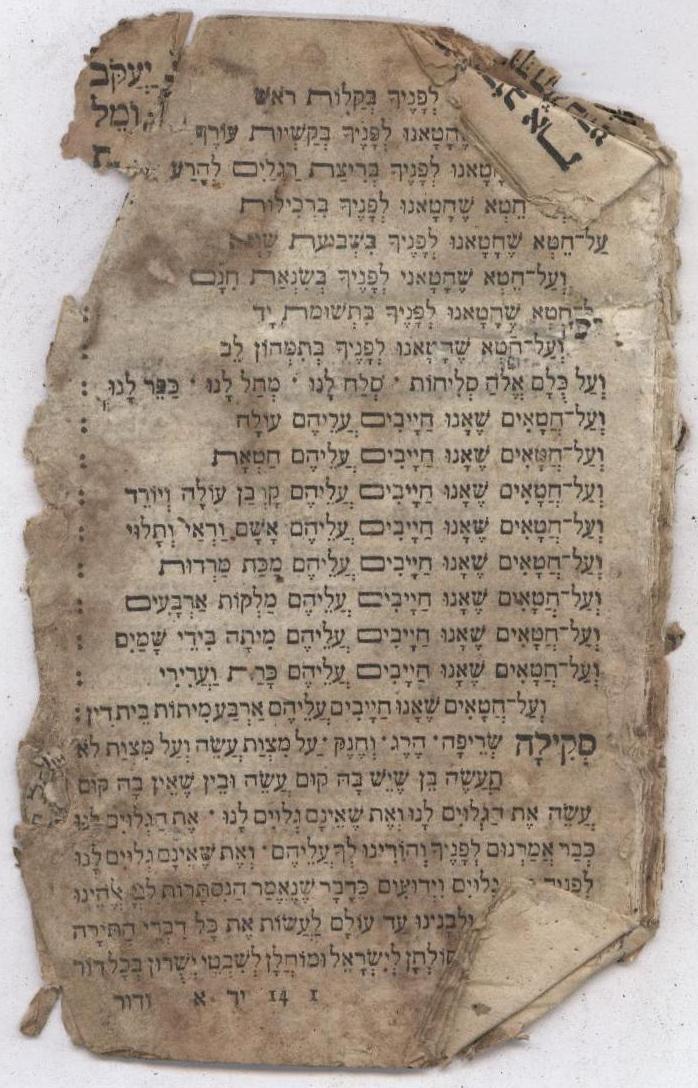 יעקב
ומל
לְפָנֶיךָ בְּקַלּוּת רֹאשׁ
שֶׁחָטָאנוּ לְפָנֶיךָ בְּקַשְׁיוּת עוֹרֶף
לְפָנֶיךָ בְּרִיצַת רַגְלַיִם לְהָרַע
חֵטְא שֶׁחָטָאנוּ לְפָנֶיךָ בִּרְכִילוּת
עַל־חֵטְא שֶׁחָטָאנוּ לְפָנֶיךָ בִּשְׁבוּעַת שָׁוְא
וְעַל־חֵטְא שֶׁחָטָאנוּ לְפָנֶיךָ בְּשִׂנְאַת חִנָּם
חֵטְא שֶׁחָטָאנוּ לְפָנֶיךָ בִּתְשׂוּמֶת יָד :
וְעַל־חֵטְא שֶׁחָטָאנוּ לְפָנֶיךָ בְּתִמְהוֹן לֵב :
וְעַל כֻּלָּם אֱלֹהַּ סְלִיחוֹת · סְלַח לָנוּ · מְחַל לָנוּ · כַּפֶּר לָנוּ :
וְעַל־חֲטָאִים שֶׁאָנוּ חַיָּיבִים עֲלֵיהֶם עוֹלָה :
וְעַל־חֲטָאִים שֶׁאָנוּ חַיָּיבִים עֲלֵיהֶם חַטָּאת :
וְעַל־חֲטָאִים שֶׁאָנוּ חַיָּיבִים עֲלֵיהֶם קָרְבַּן עוֹלֶה וְיוֹרֵד :
וְעַל־חֲטָאִים שֶׁאָנוּ חַיָּיבִים עֲלֵיהֶם אָשָׁם וַדַאי וְתָלוּי :
וְעַל־חֲטָאִים שֶׁאָנוּ חַיָּיבִים עֲלֵיהֶם מַכַּת מַרְדוּת :
וְעַל־חֲטָאִים שֶׁאָנוּ חַיָּיבִים עֲלֵיהֶם מַלְקוֹת אַרְבָּעִים :
וְעַל־חֲטָאִים שֶׁאָנוּ חַיָּיבִים עֲלֵיהֶם מִיתָה בִּידֵי שָׁמַיִם :
וְעַל־חֲטָאִים שֶׁאָנוּ חַיָּיבִים עֲלֵיהֶם כָּרֵת וַעֲרִירִי :
וְעַל־חֲטָאִים שֶׁאָנוּ חַיָּיבִים עֲלֵיהֶם אַרְבַּע מִיתוֹת בֵּית דִּין :
סְקִילָה שְׂרֵיפָה · הֶרֶג · וְחֶנֶק · עַל מִצְוַת עֲשֵׂה וְעַל מִצְוַת לֹא
תַעֲשֶׂה בֵּן שֶׁיֵּשׁ בָּהּ קוּם עֲשֵׂה וּבֵין שֶׁאֵין בָּהּ קוּם
עֲשֵׂה אֶת הַגְּלוּיִם לָנוּ וְאֶת שֶׁאֵינָם גְּלוּיִם לָנוּ · אֶת הַגְּלוּיִם לָנוּ
כְּבָר אֲמַרְנוּם לְפָנֶיךָ וְהוֹדִינוּ לְךָ עֲלֵיהֶם · וְאֶת שֶׁאֵינָם גְּלוּיִם לָנוּ
לְפָנֶיךָ גְּלוּיִם וִידוּעִים כַּדָּבָר שֶׁנֶּאֱמַר הַנִּסְתָּרוֹת
וּלְבָנֵינוּ עַד עוֹלָם לַעֲשׂוֹת אֶת כָּל דִּבְרֵי הַתּוֹרָה
סוֹלְחָן לְיִשְׂרָאֵל וּמוֹחֲלָן לְשִׁבְטֵי יְשֻׁרוּן בְּכָל דּוֹר
I 14 יד א ודור